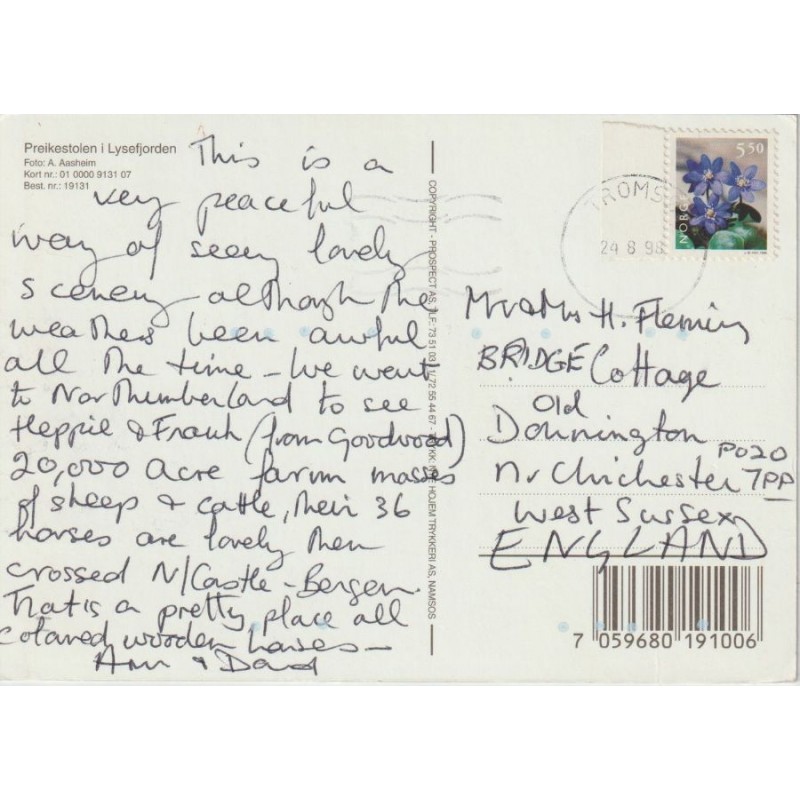 Preikestolen i Lysefjorden
Foto: A. Aasheim
Kort nr.: 01 0000 9131 07
Best. nr.: 19131
This is a
very peaceful
way of seeing lovely
scenery although the
weathers been awful
all the time - We went
to Northumberland to see
Heppie & Frank (from Goodwood)
20,000 acre farm masses
of sheep & cattle, their 36
horses are lovely then
crossed N/Castle - Bergen.
That is a pretty place all
coloured wooden houses -
Ann & David
COPYRIGHT - PROSPECT AS, TLF. 73 51 03 11/72 55 44 67 - TRYKK HOJEM TRYKKERI AS, NAMSOS
TROMS
24 8 98
5.50
NORGE
Mr & Mrs H. Fleming
BRIDGE Cottage
Old
Donnington
Nr Chichester PO20
7PP
West Sussex
ENGLAND
7 059680 191006